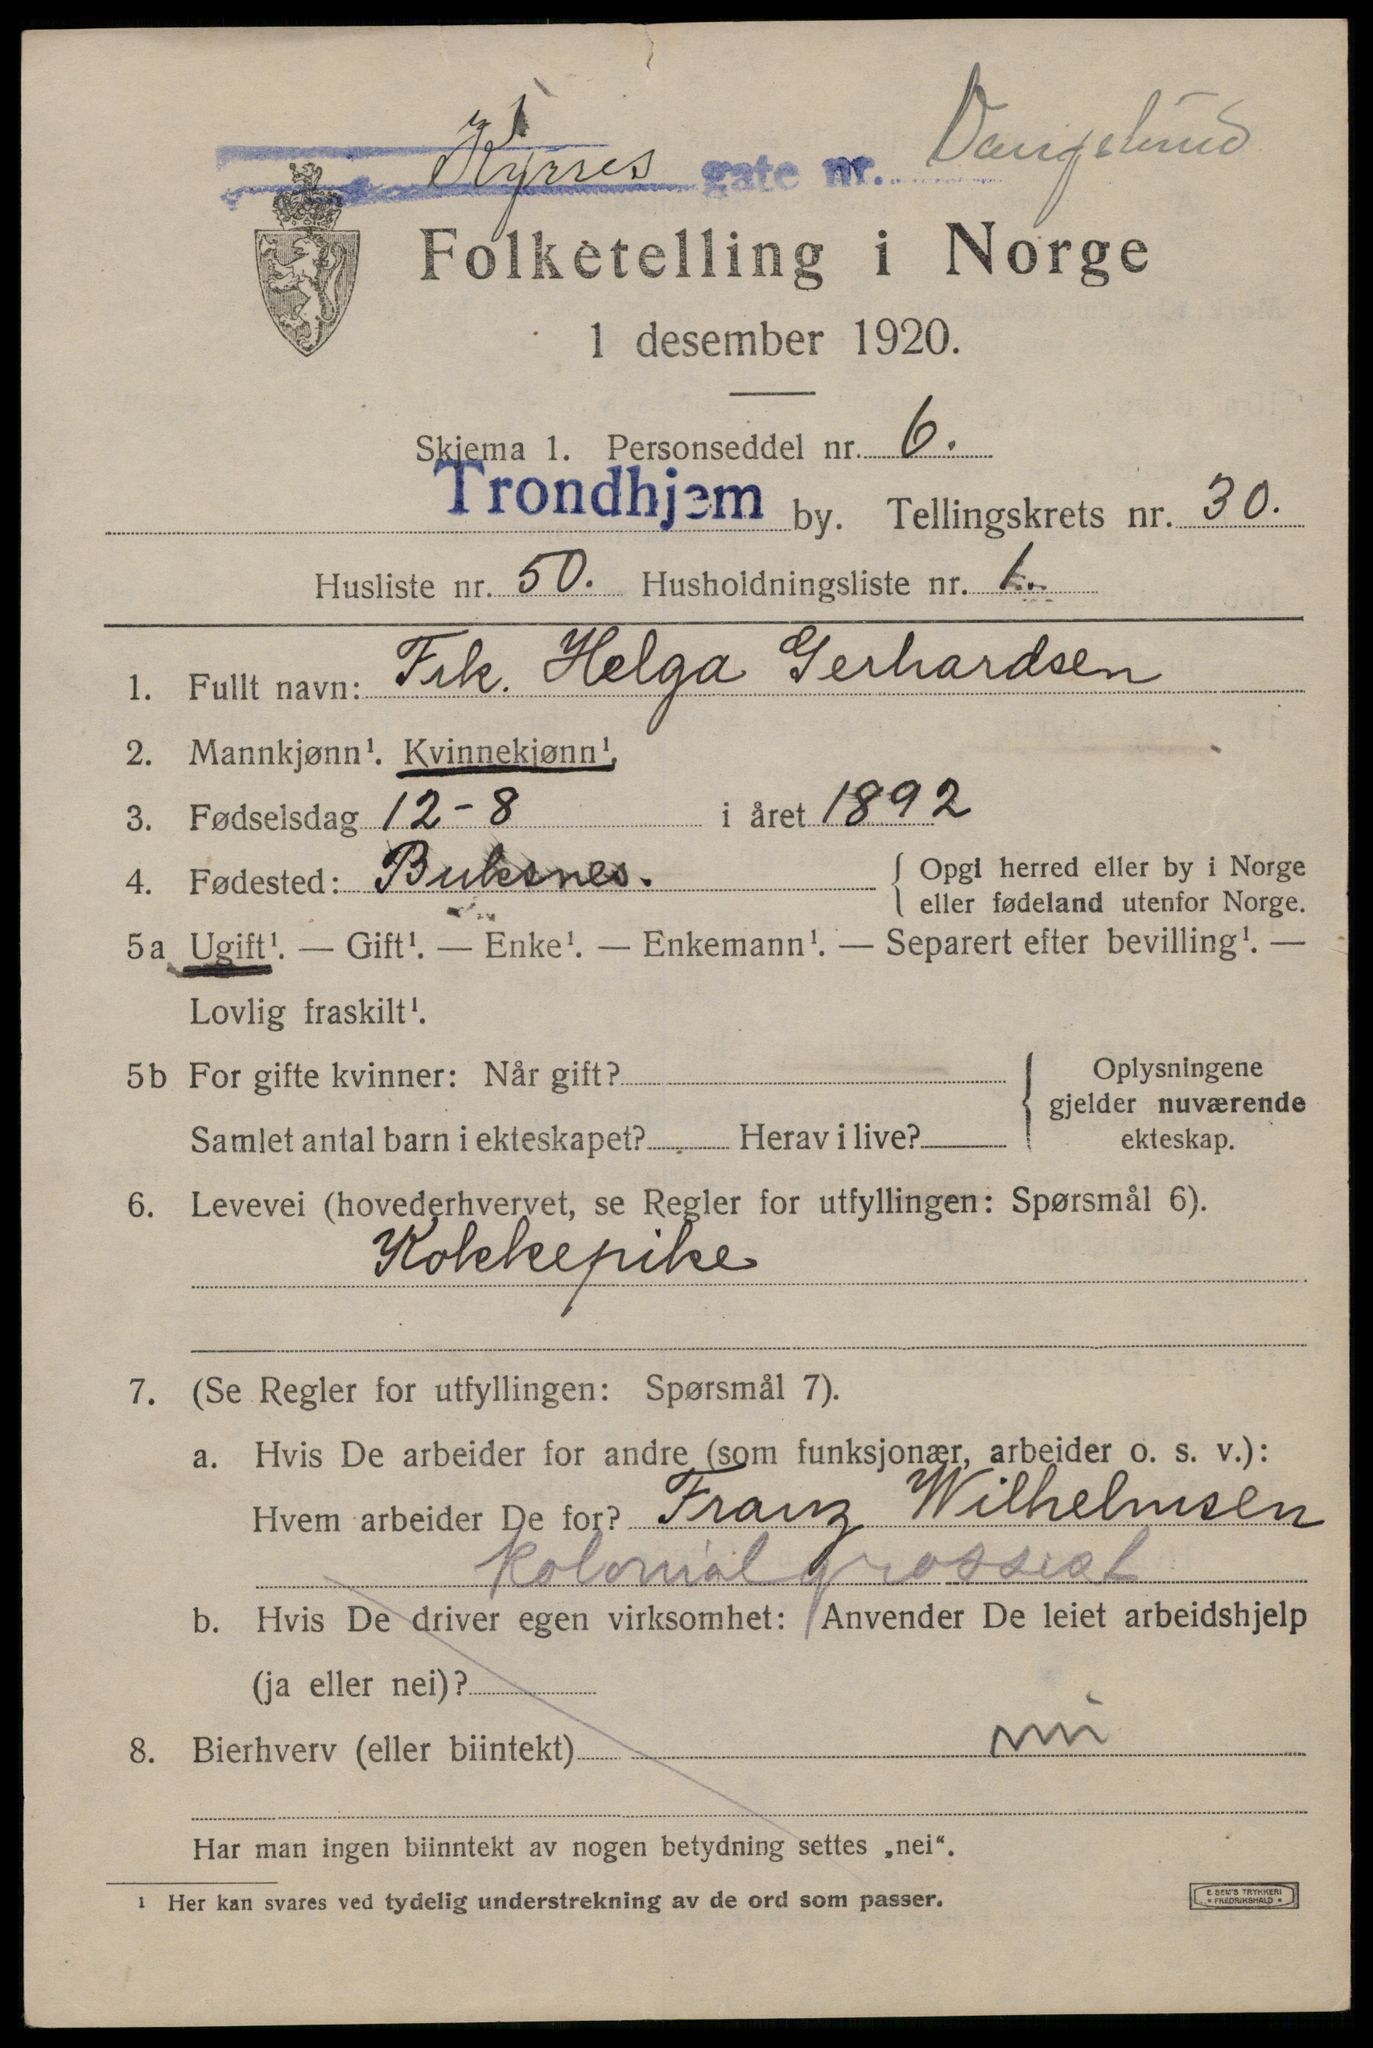 Kyrres gate nr.
Folketelling i Norge
1 desember 1920.
Skjema 1. Personseddel nr. 6.
Trondhjem by. Tellingskrets nr. 30.
Husliste nr. 50. Husholdningsliste nr. 1.
1. Fullt navn: Frk. Helga Gerhardsen
2. Mannkjønn¹. Kvinnekjønn¹.
3. Fødselsdag 12-8 i året 1892
4. Fødested: Buksnes. { Opgi herred eller by i Norge
eller fødeland utenfor Norge.
5a Ugift¹. — Gift¹. — Enke¹. — Enkemann¹. — Separert efter bevilling¹. —
Lovlig fraskilt¹.
5b For gifte kvinner: Når gift? { Oplysningene
gjelder nuværende
Samlet antal barn i ekteskapet? Herav i live? ekteskap.
6. Levevei (hovederhvervet, se Regler for utfyllingen: Spørsmål 6).
Kokkepike
7. (Se Regler for utfyllingen: Spørsmål 7).
a. Hvis De arbeider for andre (som funksjonær, arbeider o. s. v.):
Hvem arbeider De for? Franz Wilhelmsen
kolonialgrossist
b. Hvis De driver egen virksomhet: Anvender De leiet arbeidshjelp
(ja eller nei)?
8. Bierhverv (eller biintekt) nei
Har man ingen biinntekt av nogen betydning settes „nei“.
¹ Her kan svares ved tydelig understrekning av de ord som passer.
E. SEM'S TRYKKERI
• FREDRIKSHALD •